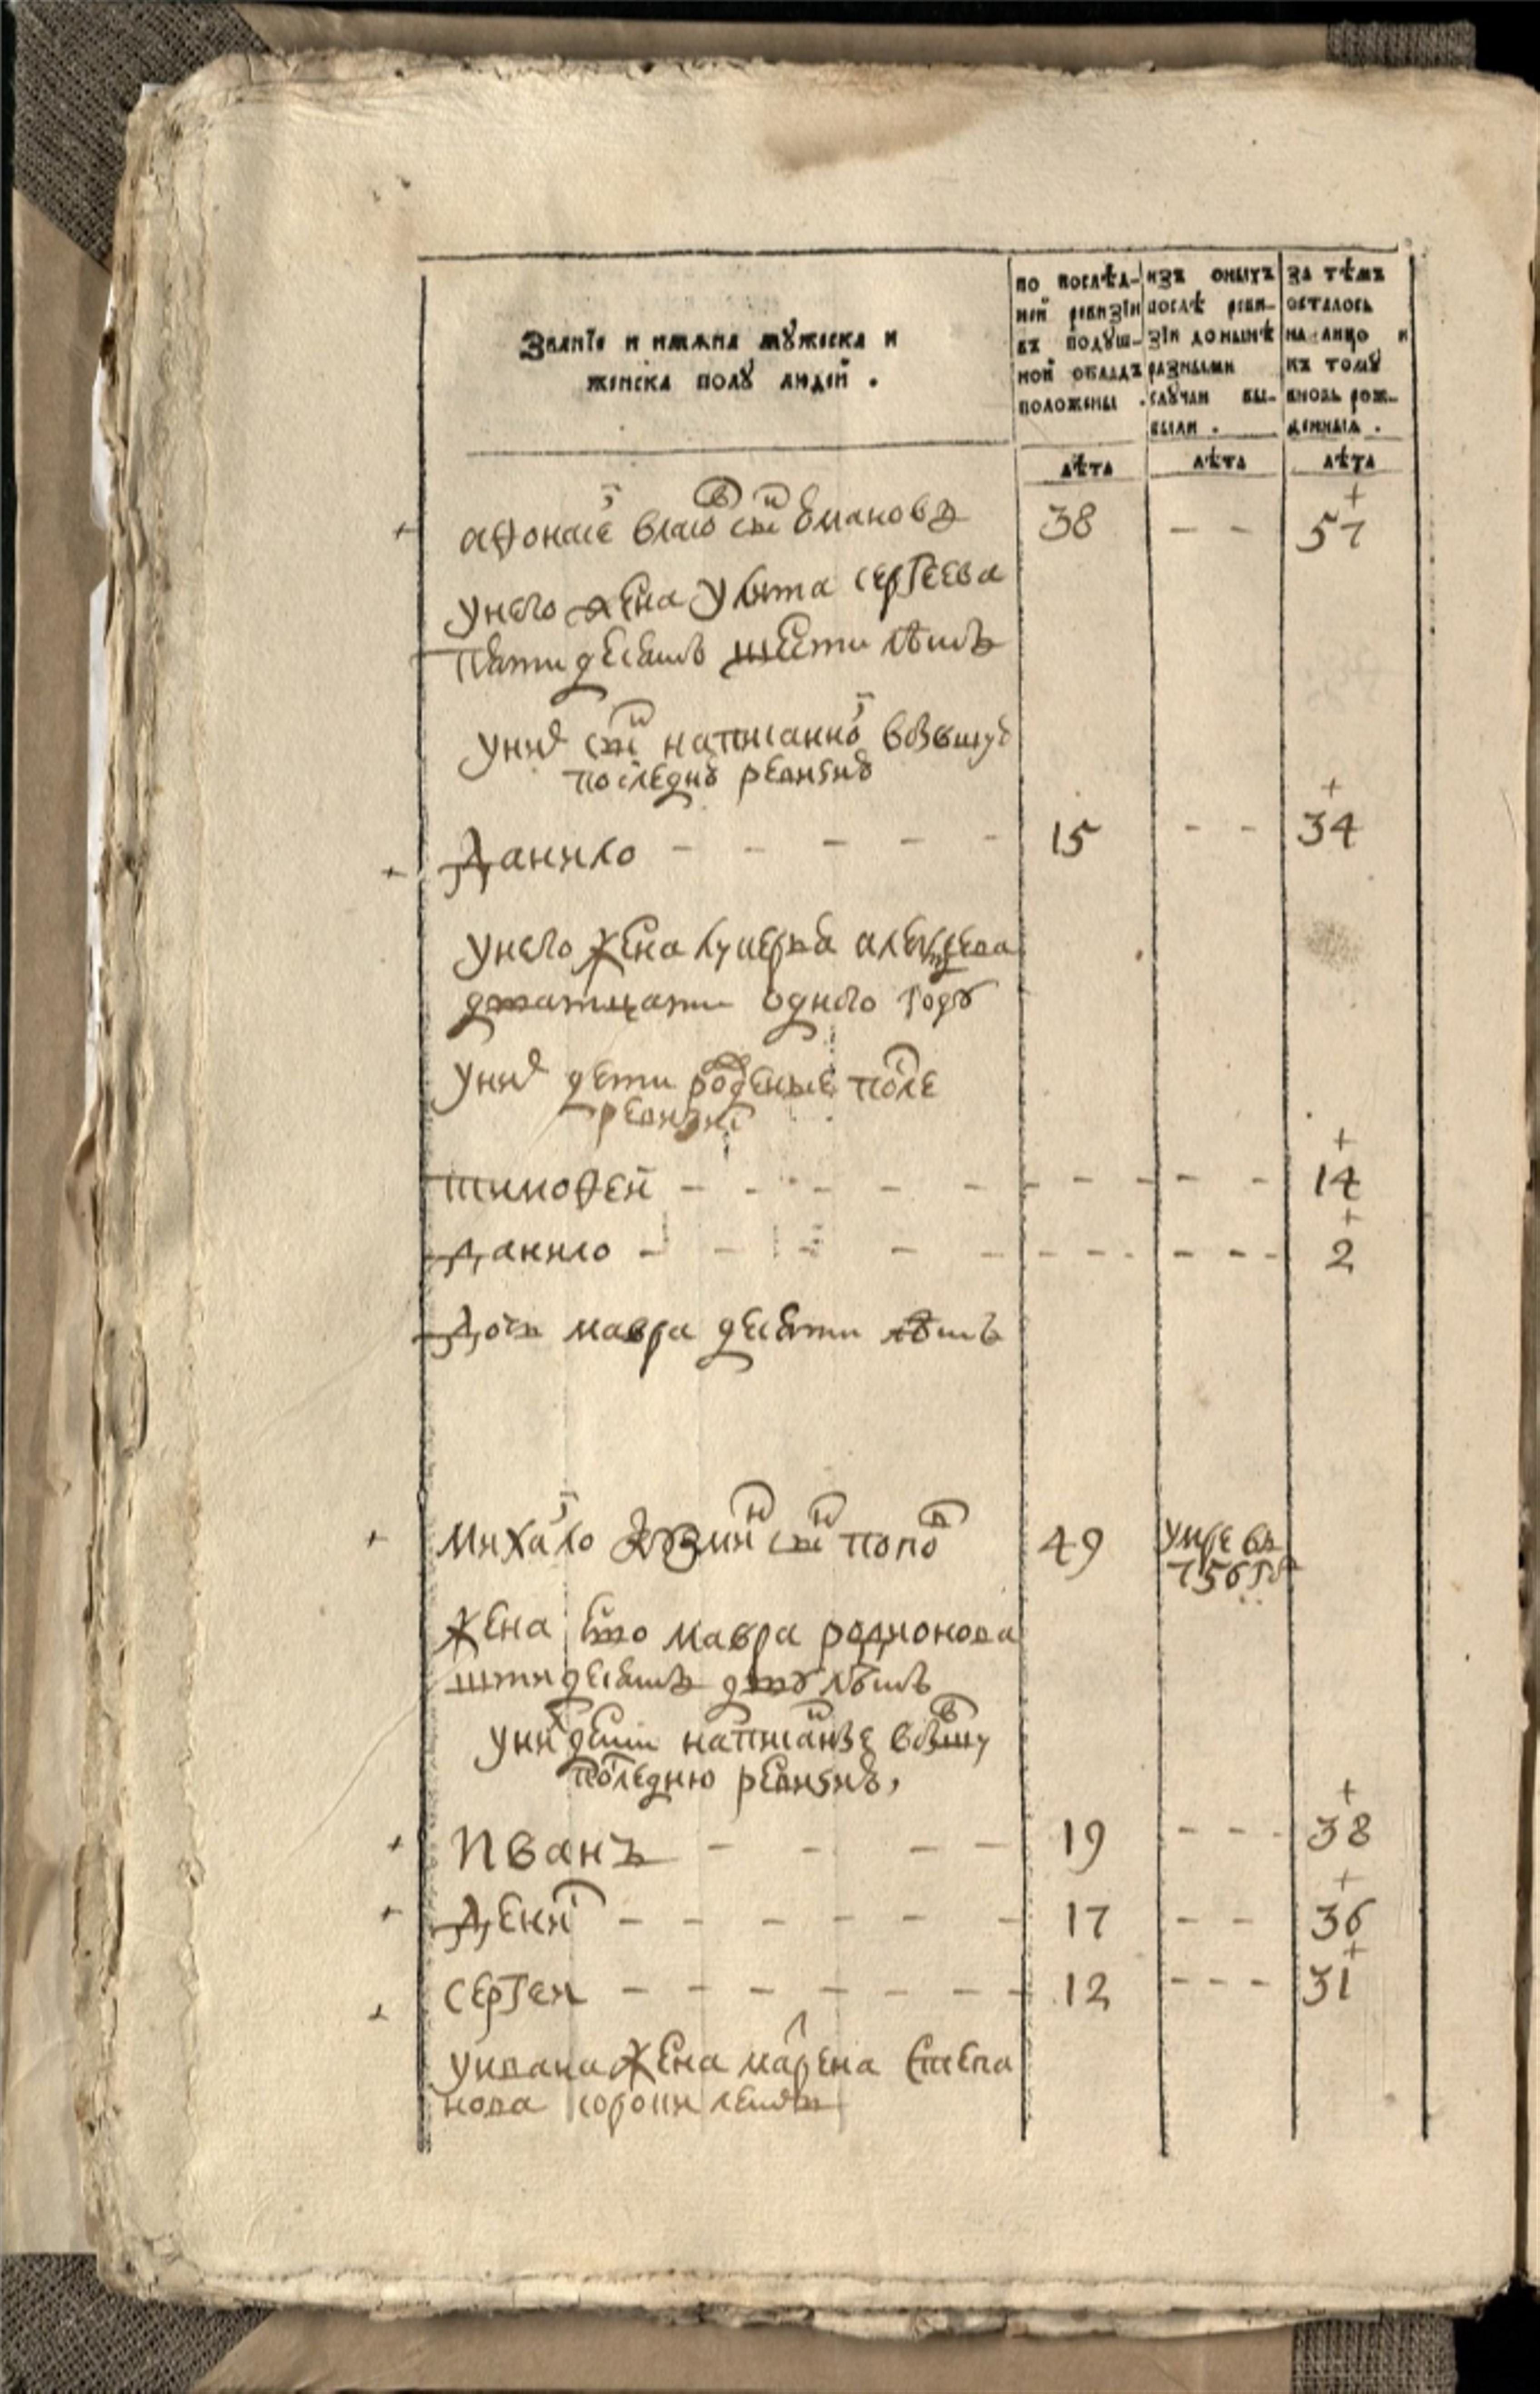 Званїе и имѧна мꙋжеска и
женска полꙋ людей .
по послѣд-
ней ревизїи
въ подꙋш-
ной окладъ
положены .
изъ оныхъ
послѣ реви-
зїи донынѣ
разными
слꙋчаи вы-
были .
за тѣмъ
осталось
на лицо и
къ томꙋ
вновь рож-
денныѧ .
лѣта лѣта лѣта
афонасеи власов снъ 38 - - 57
унего жена сергеева
пѧтидесѧтъ шести лѣтъ
уних снъ написанной
последнюю ревизию
Данило - - - - - 15 - - 34
унего жена лукерья
дватцати одного годꙋ
уних дети роденые после
ревизиі
тимофей - - - - - - - - - - 14
данило - - - - - - - - - - 2
Дочь мавра десѧти лѣтъ
Михаило кꙋзмин снъ попов 49 умре въ
756 гд
жена ево мавра родионова
штидесѧтъ двꙋ лѣтъ
уних дети написаны
последнюю ревизию
Иванъ - - - - 19 - - - 38
Денис - - - - - - 17 - - 36
Сергей - - - - - - 12 - - - 31
уивана жена степа
нова сороки летъ